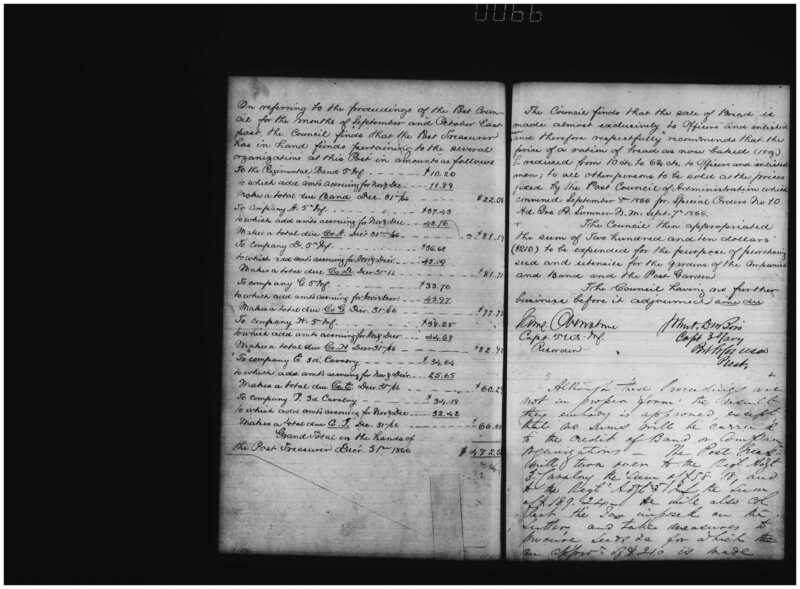 0066
On referring to the proceedings of the Post Coun-
cil for the months of September and October last
past, the Council finds that the Post Treasurer
has in hand funds pertaining to the several
organizations at this Post in amounts as follows
To the Regimental Band 5" Inf. $10.20
to which add amts accruing for Nov & Dec 11.89
Makes a total due Band Dec. 31st/66 $22.0
To Company A. 5" Inf.
to which add amts accruing for Nov & Dec
Makes a total due Co A. Dec 31st/66 $81.
To Company D. 5" Inf.
to which add amts accruing for Nov & Dec
Makes a total due Co D. Dec 31st
To Company G 5" Inf. $33.70
to which add amts accruing for Nov & Dec 43.97
Makes a total due Co G Dec. 31st/66 $77.
To Company H. 5" Inf. $38.25
to which add amts accruing for Nov & Dec 44.63
Makes a total due Co. H Dec 31st/66 $82.
To Company E 3d Cavalry $34.64
to which add amts accruing for Nov & Dec 25.65
Makes a total due Co. E Dec 31st/66 $60.2
To Company I. 3d Cavalry $34.18
to which add amts accruing for Nov & Dec 32.42
Makes a total due Co. I. Dec. 31st/66 $66.6
Grand Total in the hands of
the Post Treasurer Dec'r 31st 1866
The Council finds that the sale of Bread is
made almost exclusively to Officers and enlisted
and therefore respectfully recommends that the
price of a ration of bread as now baked
reduced from 10 cts to 6¼ cts. to Officers and enlisted
men; to all other persons to be sold at the prices
fixed by the Post Council of Administration which
convened September 8" 1866 per Special Orders No 10
Hd. Qrs. Ft. Sumner N. M. Sept. 7" 1866.
The Council then appropriated
the sum of Two hundred and ten dollars
($210) to be expended for the purpose of purchasing
seed and utensils for the gardens of the Companies
and Band and the Post Garden
The Council having no further
business before it adjourned sine die
Capt. 5" U.S. Inf.
Recorder
Capt 3" Cavy
Although these Proceedings are
not in proper form: the results
they embody is approved, except
that no sums will be carried
to the credit of Band or Company
organizations — The Post Treas-
will turn over to the Regt Hdqt
3" Cavalry the sum of and
to the Regt Hdqt 5" Inf the sum
of He will also col-
lect the Tax imposed on the
Sutlers and take measures to
procure seeds &c for which the
an appro'n of $210 is made